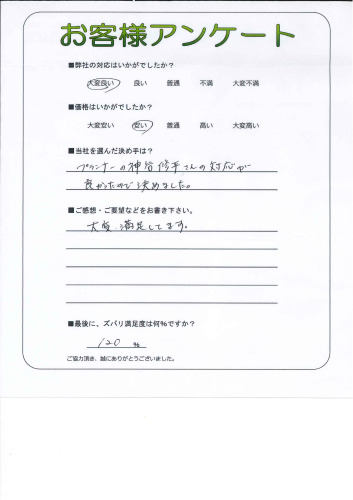 お客様アンケート
■弊社の対応はいかがでしたか？
大変良い　良い　普通　不満　大変不満
■価格はいかがでしたか？
大変安い　安い　普通　高い　大変高い
■当社を選んだ決め手は？
プランナーの神谷修平さんの対応が
良かったので決めました。
■ご感想・ご要望などをお書き下さい。
大変満足してます。
■最後に、ズバリ満足度は何%ですか？
120 %
ご協力頂き、誠にありがとうございました。